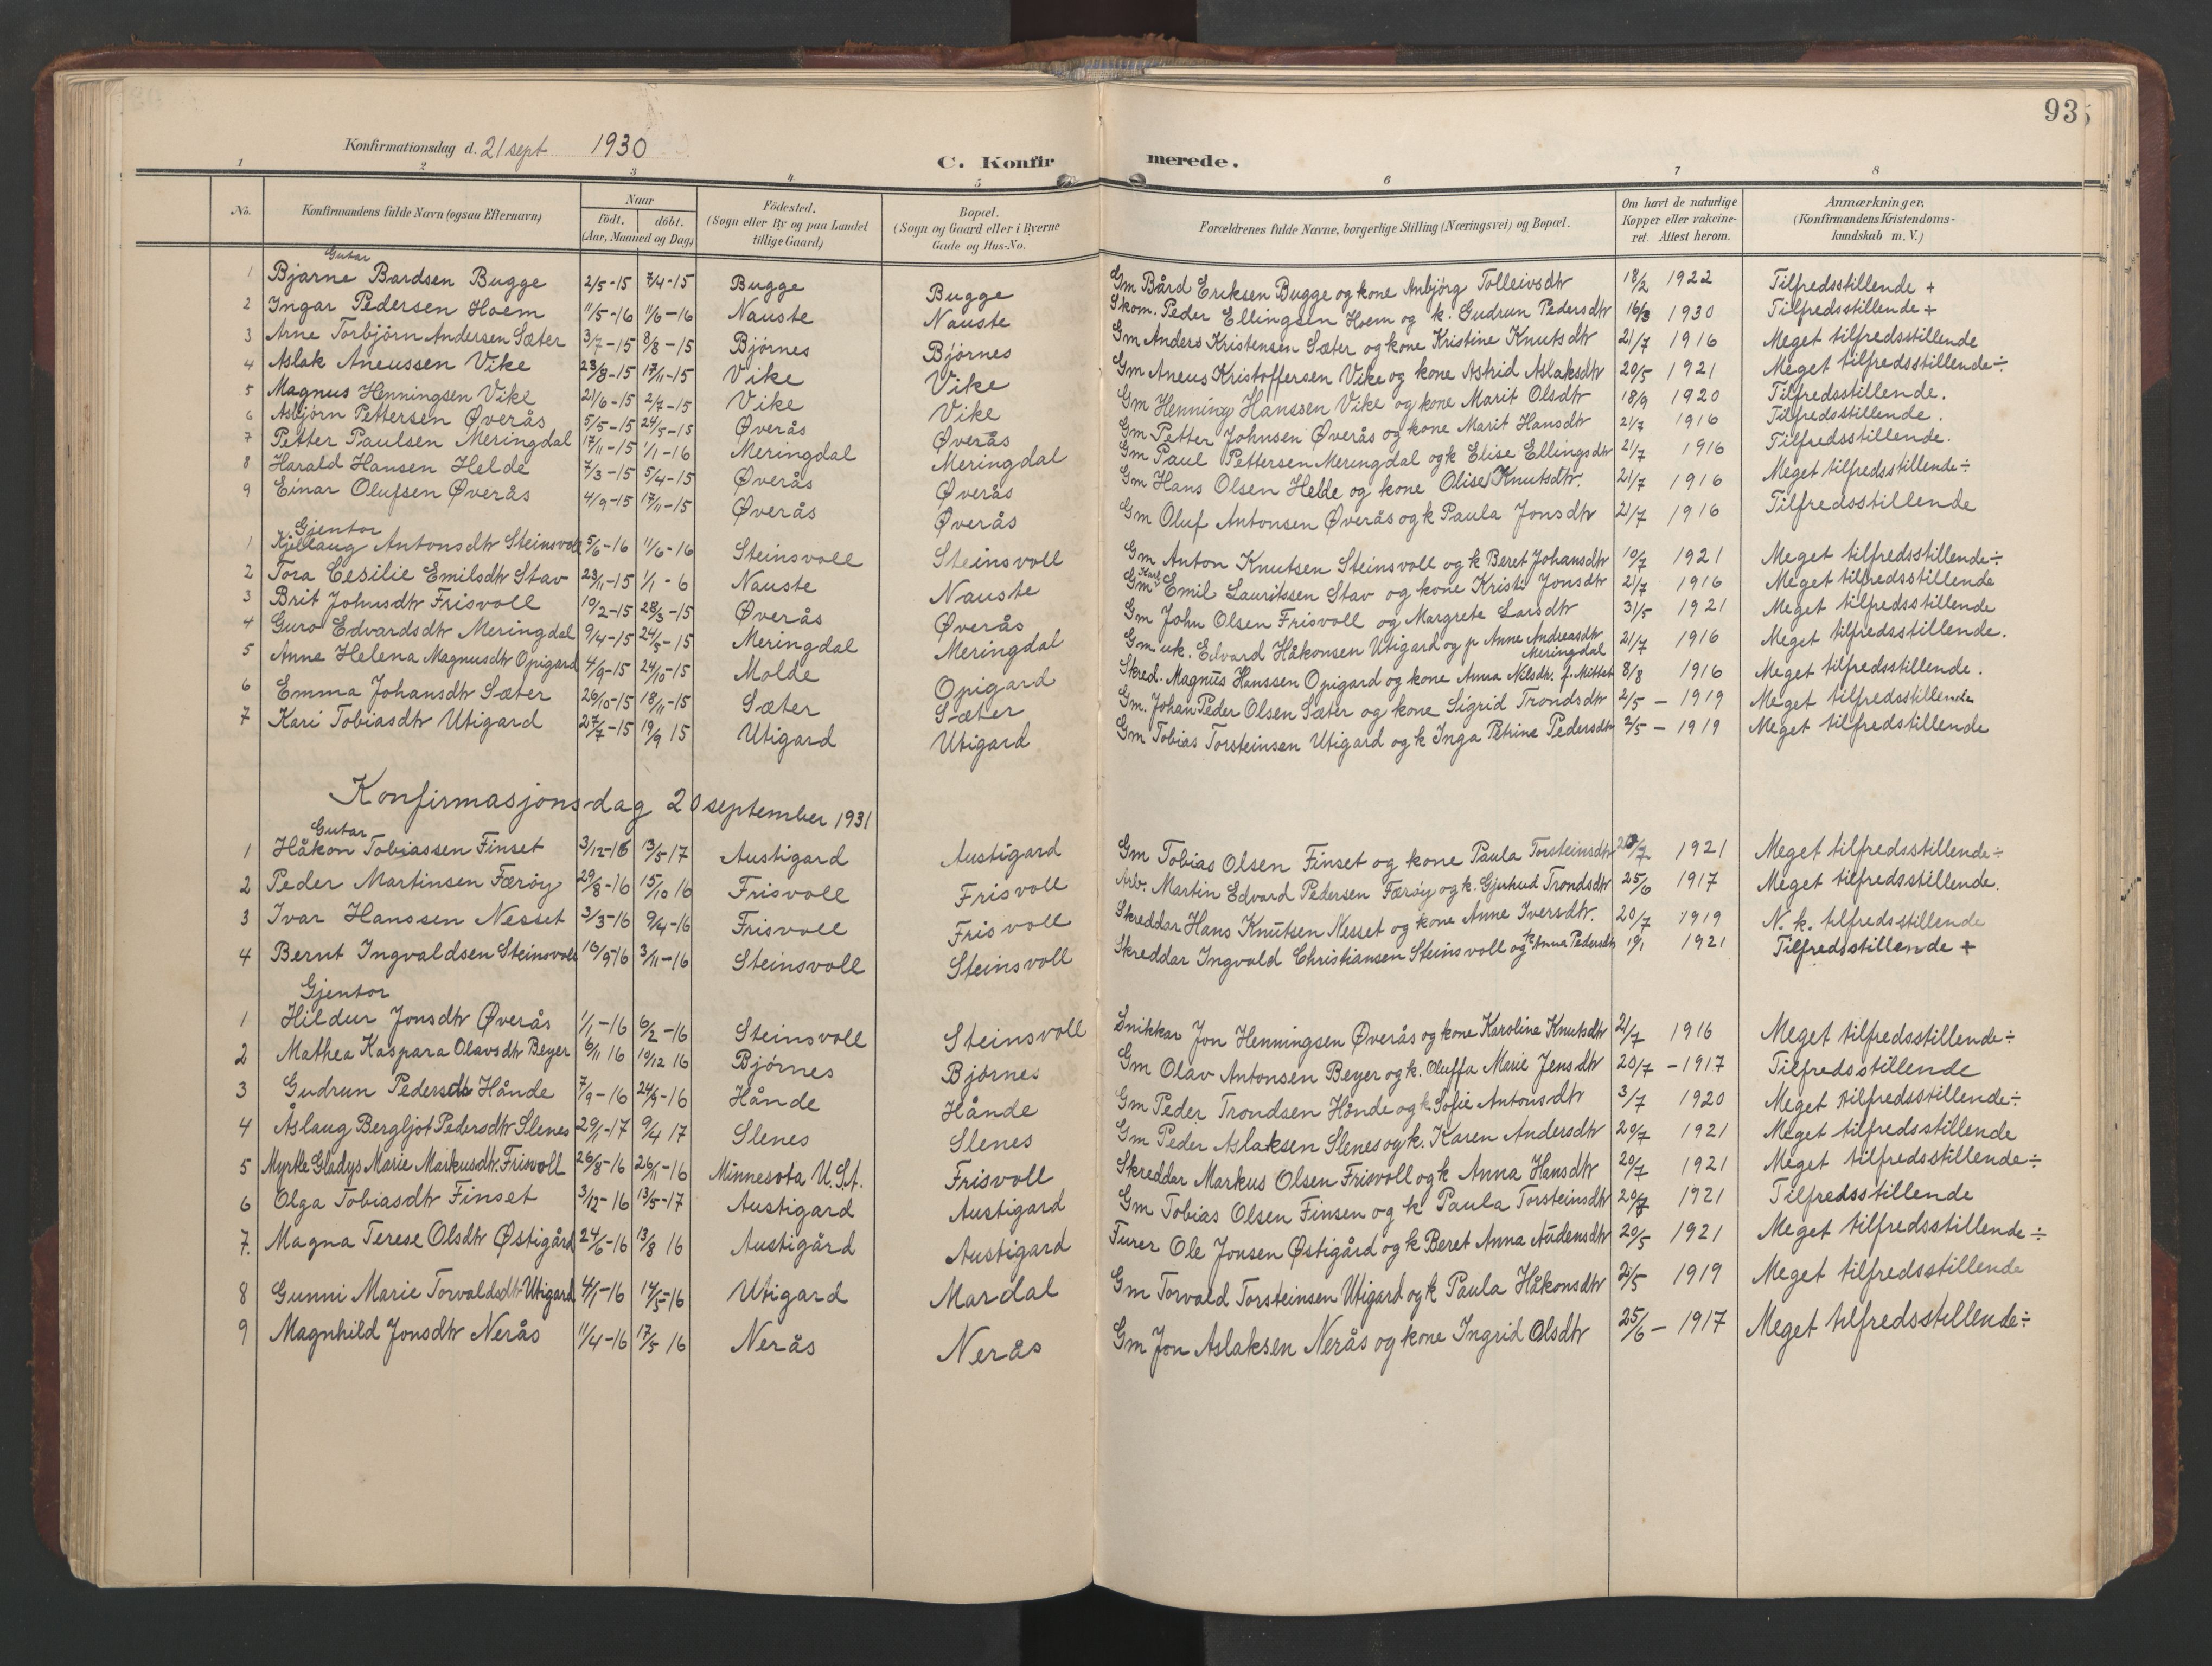 93
Konfirmationsdag d. 21 sept 1930
C. Konfirmerede.
1 2 3 4 5 6 7 8
No. | Konfirmandens fulde Navn (ogsaa Efternavn) | Naar födt. döbt. (Aar, Maaned og Dag) | Födested. (Sogn eller By og paa Landet tillige Gaard) | Bopæl. (Sogn og Gaard eller i Byerne Gade og Hus-No. | Forældrenes fulde Navne, borgerlige Stilling (Næringsvei) og Bopæl. | Om havt de naturlige Kopper eller vakcineret. Attest herom. | Anmærkninger, (Konfirmandens Kristendomskundskab m. V.)
Gutar
1 Bjarne Bardsen Bugge 2/5-15 7/4-15 Bugge Bugge Gm Bård Eriksen Bugge og kone Anbjörg Tolleivsdtr 18/2 1922 Tilfredsstillende +
2 Ingar Pedersen Hoem 11/5-16 11/6-16 Nauste Nauste Skom. Peder Ellingsen Hoem og k. Gudrun Pedersdtr 16/3 1930 Tilfredsstillende +
3 Arne Torbjörn Andersen Sæter 3/7-15 8/8-15 Björnes Björnes Gm Anders Kristensen Sæter og kone Kristine Knutsdtr 21/7 1916 Meget tilfredsstillende
4 Aslak Aneussen Vike 23/8-15 17/11-15 Vike Vike Gm Aneus Kristoffersen Vike og kone Astrid Aslaksdtr 20/5 1921 Meget tilfredsstillende ÷
5 Magnus Henningsen Vike 21/6-15 2/7-15 Vike Vike Gm Henning Hanssen Vike og kone Marit Olsdtr 18/9 1920 Tilfredsstillende.
6 Asbjörn Pettersen Øverås 5/5-15 24/5-15 Øverås Øverås Gm Petter Johnsen Øverås og kone Marit Hansdtr 21/7 1916 Tilfredsstillende.
7 Petter Paulsen Meringdal 17/11-15 1/1-16 Meringdal Meringdal Gm Paul Pettersen Meringdal og k Elise Ellingsdtr 21/7 1916 Tilfredsstillende.
8 Harald Hansen Helde 7/3-15 5/4-15 Øverås Øverås Gm Hans Olsen Helde og kone Olise Knutsdtr. 21/7 1916 Meget tilfredsstillende ÷
9 Einar Olufsen Øverås 4/9-15 17/11-15 Øverås Øverås Gm Oluf Antonsen Øverås og k Paula Jonsdtr 21/7 1916 Tilfredsstillende
Gjentor
1 Kjellaug Antonsdtr Steinsvoll 5/6-16 11/6-16 Steinsvoll Steinsvoll Gm Anton Knutsen Steinsvoll og k Beret Johansdtr 10/7 1921 Meget tilfredsstillende ÷
2 Tora Cesilie Emilsdtr Stav 23/11-15 1/1-6 Nauste Nauste Gm Karl Emil Lauritssen Stav og kone Kristi Jonsdtr 21/7 1916 Meget tilfredsstillende
3 Brit Johnsdtr Frisvoll 10/2-15 28/3-15 Øverås Øverås Gm John Olsen Frisvoll og Margrete Larsdtr 31/5 1921 Meget tilfredsstillende
4 Guro Edvardsdtr Meringdal 9/4-15 24/5-15 Meringdal Meringdal Gm uk. Edvard Håkonsen Utigard og p Anne Andreasdtr Meringdal 21/7 1916 Meget tilfredsstillende.
5 Anne Helena Magnusdtr Opigard 4/9-15 24/10-15 Molde Opigard Skred. Magnus Hanssen Opigard og kone Anna Nilsdtr. f. Mittet 8/8 1916 Meget tilfredsstillende.
6 Emma Johansdtr Sæter 26/10-15 18/11-15 Sæter Sæter Gm. Johan Peder Olsen Sæter og kone Sigrid Trondsdtr 2/5 - 1919 Meget tilfredsstillende
7 Kari Tobiasdtr Utigard 27/7-15 19/9 15 Utigard Utigard Gm Tobias Torsteinsen Utigard og k Inga Petrine Pedersdtr 2/5 - 1919 Meget tilfredstillende
Konfirmasjonsdag 20 september 1931
Gutar
1 Håkon Tobiassen Finset 3/12-16 13/5-17 Austigard Austigard Gm Tobias Olsen Finset og kone Paula Torsteinsdtr 20/7 1921 Meget tilfredsstillende ÷
2 Peder Martinsen Færöy 29/8-16 15/10 16 Frisvoll Frisvoll Arb. Martin Edvard Pedersen Færöy og k. Gjuhud Trondsdtr 25/6 1917 Meget tilfredsstillende.
3 Ivar Hanssen Nesset 3/3-16 9/4-16 Frisvoll Frisvoll Skreddar Hans Knutsen Nesset og kone Anne Iversdtr. 20/7 1919 N. k. tilfredsstillende
4 Bernt Ingvaldsen Steinsvoll 16/9-16 3/11-16 Steinsvoll Steinsvoll Skreddar Ingvald Christiansen Steinsvoll og k Anna Pedersdtr 19/1 1921 Tilfredsstillende +
Gjentor
1 Hildur Jonsdtr Øverås 1/1-16 6/2-16 Steinsvoll Steinsvoll Snikkar Jon Henningsen Øverås og kone Karoline Knutsdtr 21/7 1916 Meget tilfredsstillende ÷
2 Mathea Kaspara Olavsdtr Beyer 6/11 16 10/12 16 Björnes Björnes Gm Olav Antonsen Beyer og k. Oluffa Marie Jensdtr 20/7 - 1917 Tilfredsstillende
3 Gudrun Pedersdtr Hånde 7/9-16 24/9-16 Hånde Hånde Gm Peder Trondsen Hånde og k. Sofie Antonsdtr 3/7 1920 Meget tilfredsstillende ÷
4 Åslaug Bergljot Pedersdtr Slenes 29/1-17 9/4 17 Slenes Slenes Gm Peder Aslaksen Slenes og k. Karen Andersdtr 20/7 1921 Meget tilfredsstillende
5 Myrtle Gladys Marie Markusdtr. Frisvoll 26/8-16 26/11-16 Minnesota U.S.A. Frisvoll Skreddar Markus Olsen Frisvoll og k Anna Hansdtr 20/7 1921 Meget tilfredsstillende ÷
6 Olga Tobiasdtr Finset 3/12-16 13/5-17 Austigard Austigard Gm Tobias Olsen Finsen og k Paula Torsteinsdtr 20/7 1921 Tilfredsstillende
7. Magna Terese Olsdtr Østigård 24/6-16 13/8 16 Austigård Austigard Furer Ole Jonsen Østigård og k Beret Anna Audensdtr 20/5 1921 Meget tilfredsstillende ÷
8 Gunni Marie Torvaldsdtr Utigard 4/1-16 14/5-16 Utigard Mardal Gm Torvald Torsteinsen Utigard og k Paula Håkonsdtr 2/5 1919 Meget tilfredsstillende
9 Magnhild Jonsdtr Nerås 11/4-16 17/5 16 Nerås Nerås Gm Jon Aslaksen Nerås og kone Ingrid Olsdtr 25/6 - 1917 Meget tilfredsstillende ÷